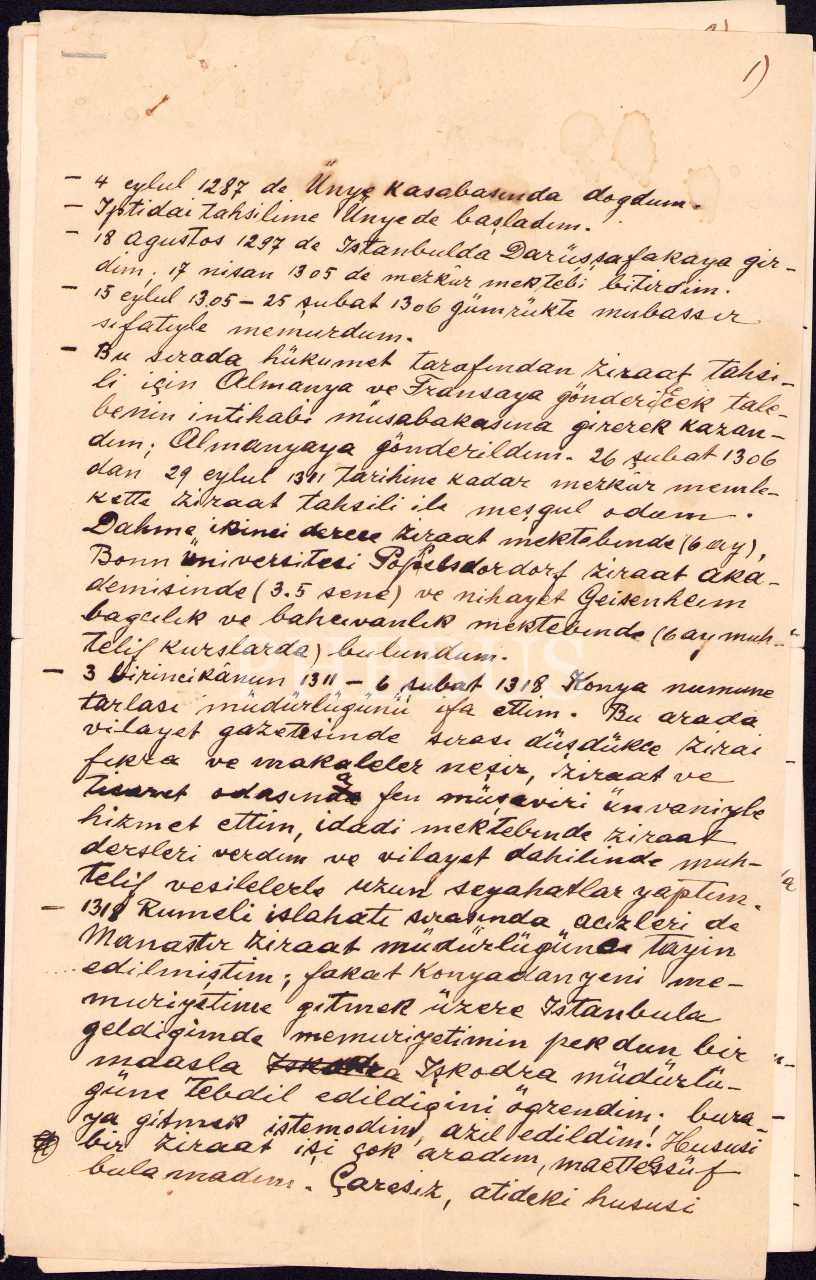 1)
- 4 eylul 1287 de Ünye kasabasında dogdum.
- Iptidai tahsilime Ünyede başladım.
- 18 Agustos 1297 de Istanbulda Darüşşafakaya gir-
dim; 17 nisan 1305 de mezkûr mektebi bitirdim.
- 15 eylul 1305 - 25 şubat 1306 gümrükte mubassır
sıfatiyle memurdum.
- Bu sırada hükumet tarafından ziraat tahsi-
li için Almanya ve Fransaya gönderilecek tale-
benin intihabi müsabakasına girerek kazan-
dım; Almanyaya gönderildim. 26 şubat 1306
dan 29 eylul 1311 tarihine kadar mezkûr memle-
kette ziraat tahsili ile meşgul odum.
Dahme ikinci derece ziraat mektebinde (6 ay),
Bonn üniversitesi ziraat aka-
demisinde (3.5 sene) ve nihayet Geisenheim
bagcılık ve bahcıvanlık mektebinde (6 ay muh-
telif kurslarda) bulundum.
- 3 birincikânun 1311 - 6 şubat 1318 Konya numune
tarlası müdürlügünü ifa ettim. Bu arada
vilayet gazetesinde sırası düşdükce zirai
fıkra ve makaleler neşir, ziraat ve
ticaret odasında fen müşaviri ünvaniyle
hizmet ettim, idadi mektebinde ziraat
dersleri verdim ve vilayet dahilinde muh-
telif vesilelerle uzun seyahatlar yaptım.
- 1318 Rumeli islahatı sırasında acizleri de
Manastır ziraat müdürlügüne tayin
edilmiştim; fakat Konyadan yeni me-
muriyetime gitmek üzere Istanbula
geldigimde memuriyetimin pek dun bir
maaşla Işkodra müdürlü-
güne tebdil edildigini ögrendim; bura-
ya gitmek istemedim, azil edildim! Hususi
bir ziraat işi çok aradım, maetteessüf
bulamadım. Çaresiz, atideki hususi
PHEBUS